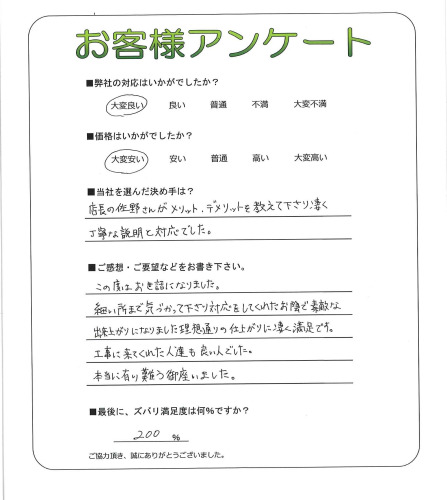 お客様アンケート
■弊社の対応はいかがでしたか？
大変良い 良い 普通 不満 大変不満
■価格はいかがでしたか？
大変安い 安い 普通 高い 大変高い
■当社を選んだ決め手は？
店長の佐野さんがメリット、デメリットを教えて下さり凄く
丁寧な説明と対応でした。
■ご感想・ご要望などをお書き下さい。
この度はお世話になりました。
細い所まで気づかって下さり対応をしてくれたお陰で素敵な
出来上がりになりました理想通りの仕上がりに凄く満足です。
工事に来てくれた人達も良い人でした。
本当に有り難う御座いました。
■最後に、ズバリ満足度は何％ですか？
200 %
ご協力頂き、誠にありがとうございました。